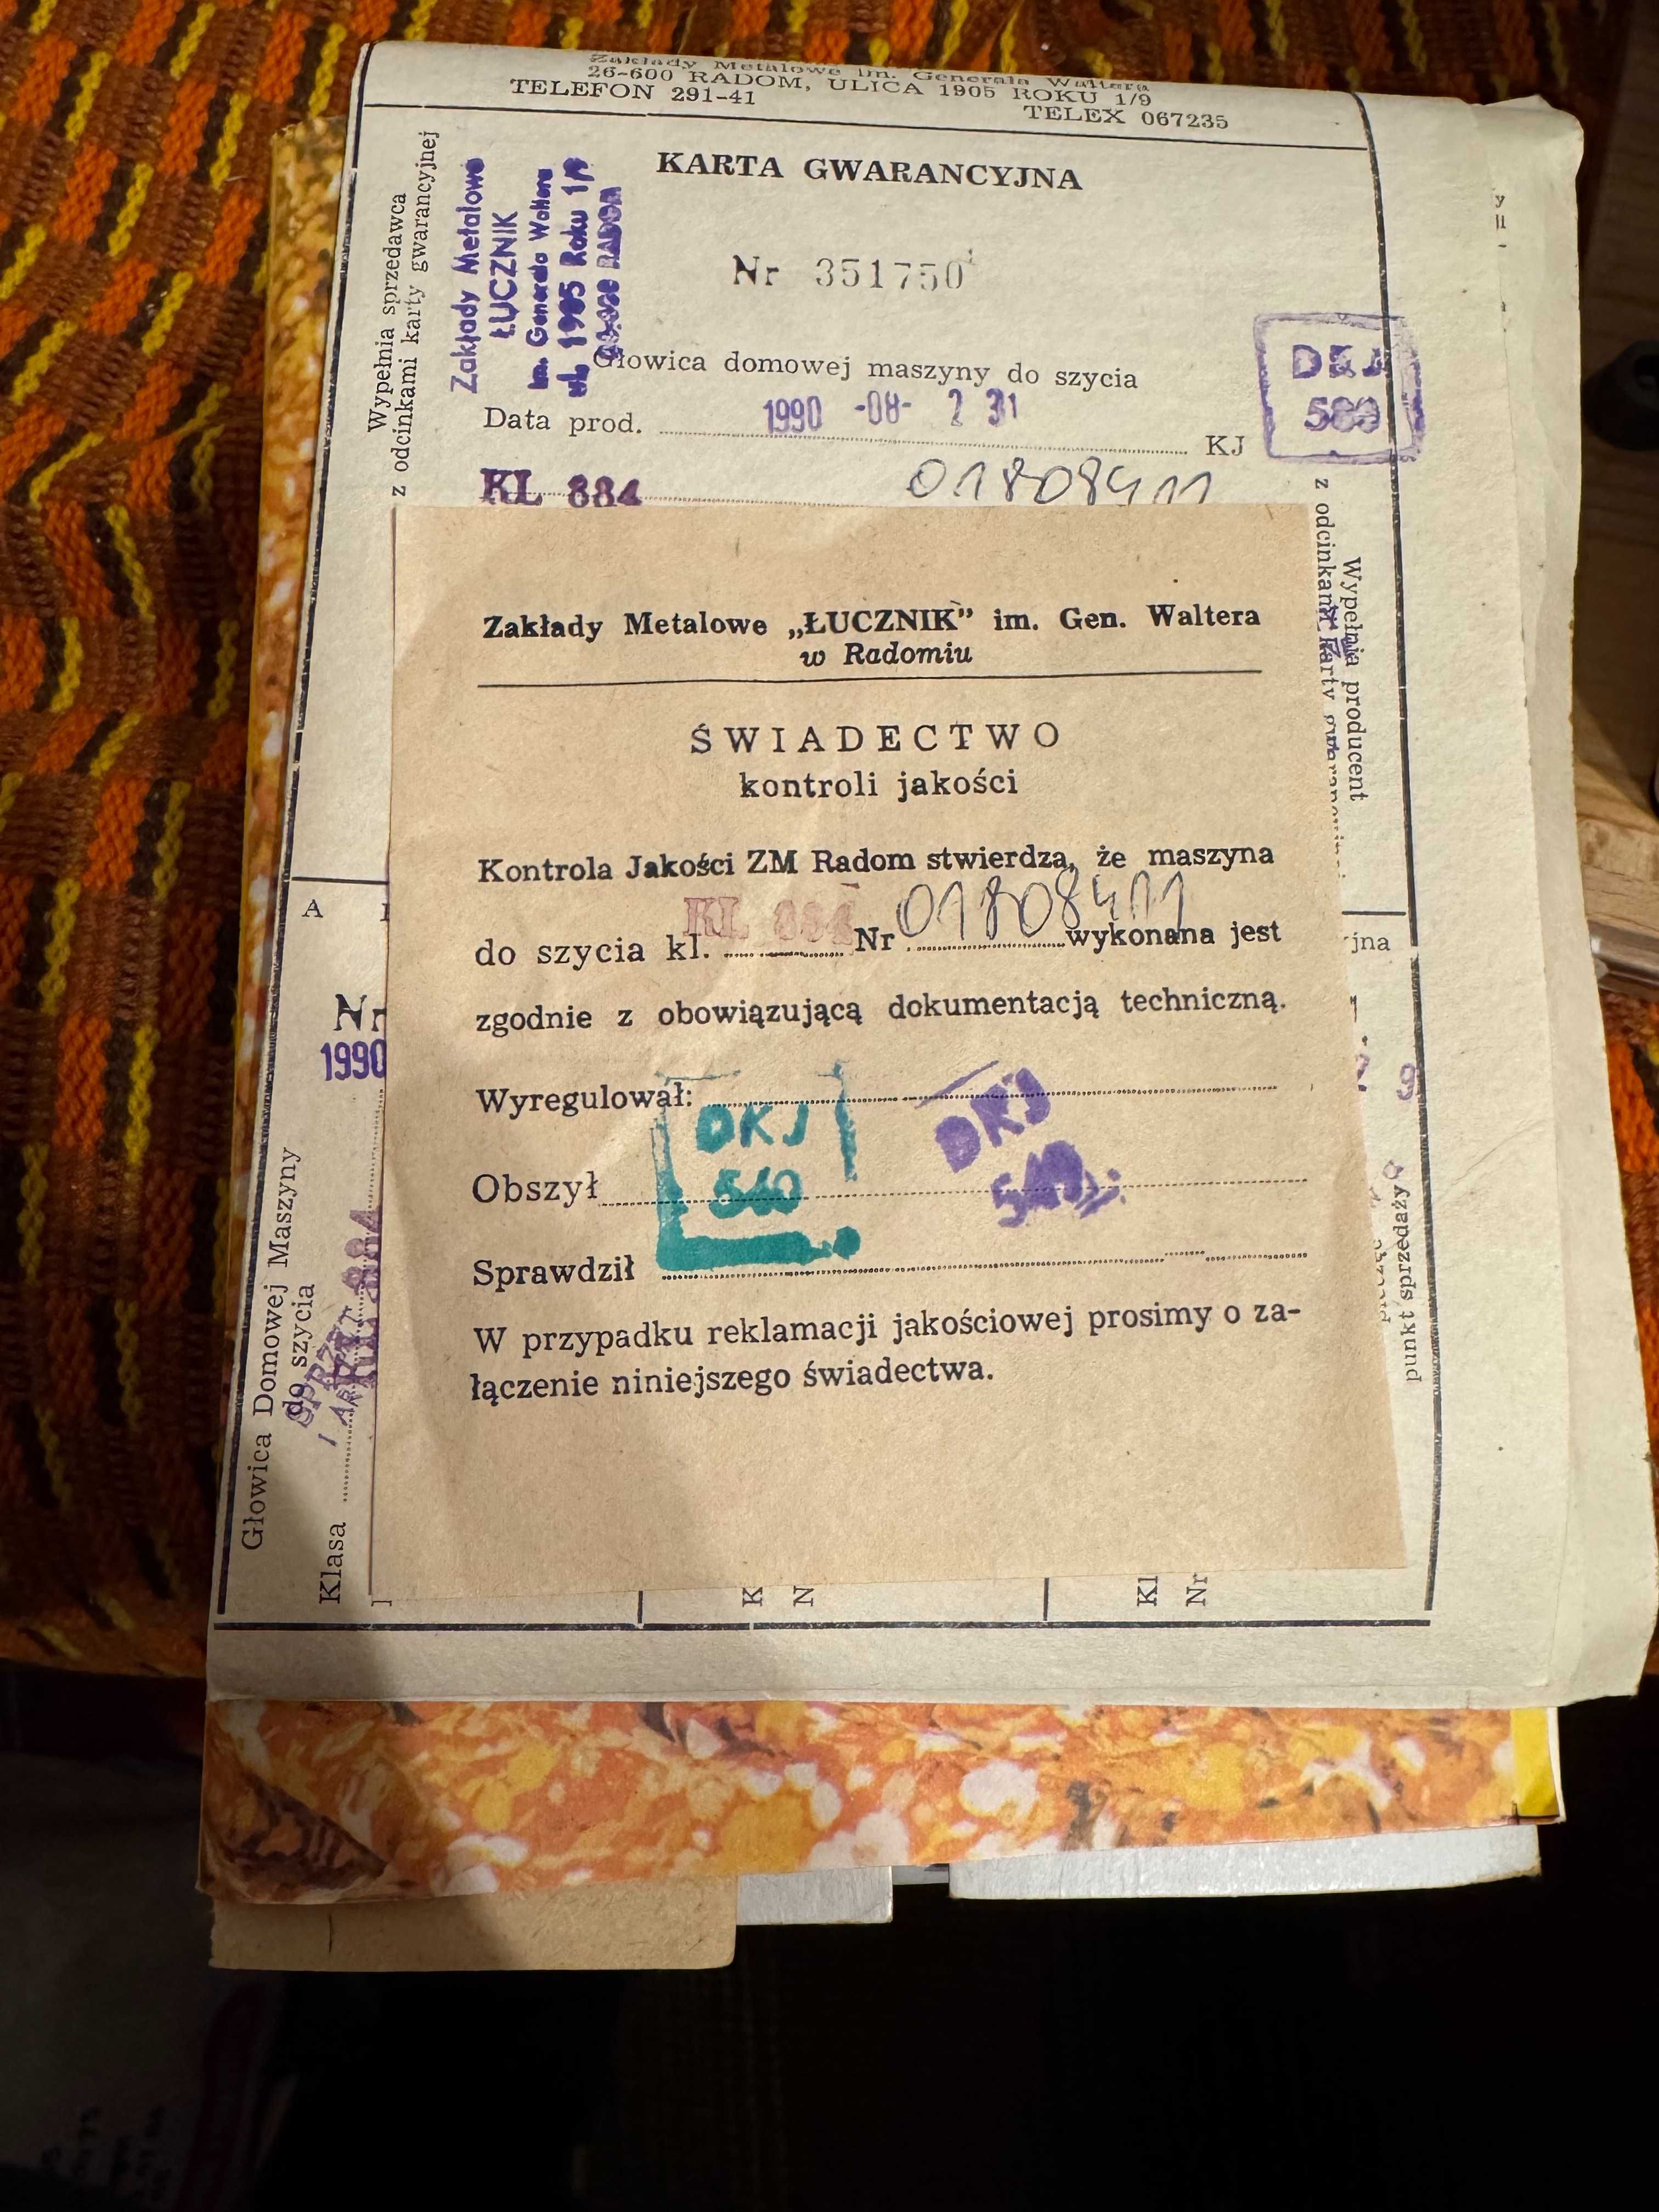 Zakłady Metalowe im. Generała Waltera
26-600 RADOM, ULICA 1905 ROKU 1/9
TELEFON 291-41 TELEX 067235
Wypełnia sprzedawca
z odcinkami karty gwarancyjnej
Zakłady Metalowe
ŁUCZNIK
im. Generała Waltera
ul. 1905 Roku 1/9
RADOM
KARTA GWARANCYJNA
Nr 351750
Głowica domowej maszyny do szycia
Data prod. 1990 -08- 2 31 KJ
DKJ
KL 884 01808411
Wypełnia producent
z odcinkami karty
Zakłady Metalowe „ŁUCZNIK” im. Gen. Waltera
w Radomiu
ŚWIADECTWO
kontroli jakości
Kontrola Jakości ZM Radom stwierdza, że maszyna
do szycia kl. KL 884 Nr 01808411 wykonana jest
zgodnie z obowiązującą dokumentacją techniczną.
Wyregulował:
DKJ
540
DKJ
540
Obszył
Sprawdził
W przypadku reklamacji jakościowej prosimy o za-
łączenie niniejszego świadectwa.
A
jna
Nr
1990
Głowica Domowej Maszyny
do szycia
Klasa
884
punkt sprzedaży
K
N
Kl
Nr